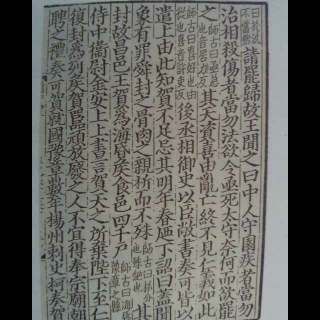 請罷歸故王聞之曰中人守園疾者當勿
治相殺傷者當勿法欲令亟死太守奈何而欲罷
之師古曰亟急也音居力反其天資喜由亂亡終不見仁義如此
師古曰喜好也音許吏反後丞相御史以臣敞書奏可皆以
遣上由此知賀不足忌其明年春乃下詔曰蓋聞
象有罪舜封之骨肉之親析而不殊師古曰析分也殊絕也其
封故昌邑王賀為海昏侯食邑四千戶師古曰海昏豫章縣
侍中衛尉金安上上書言賀天之所棄陛下至仁
復封為列侯賀嚚頑放廢之人不宜得奉宗廟朝
聘之禮奏可賀就國豫章數年揚州刺史柯奏賀